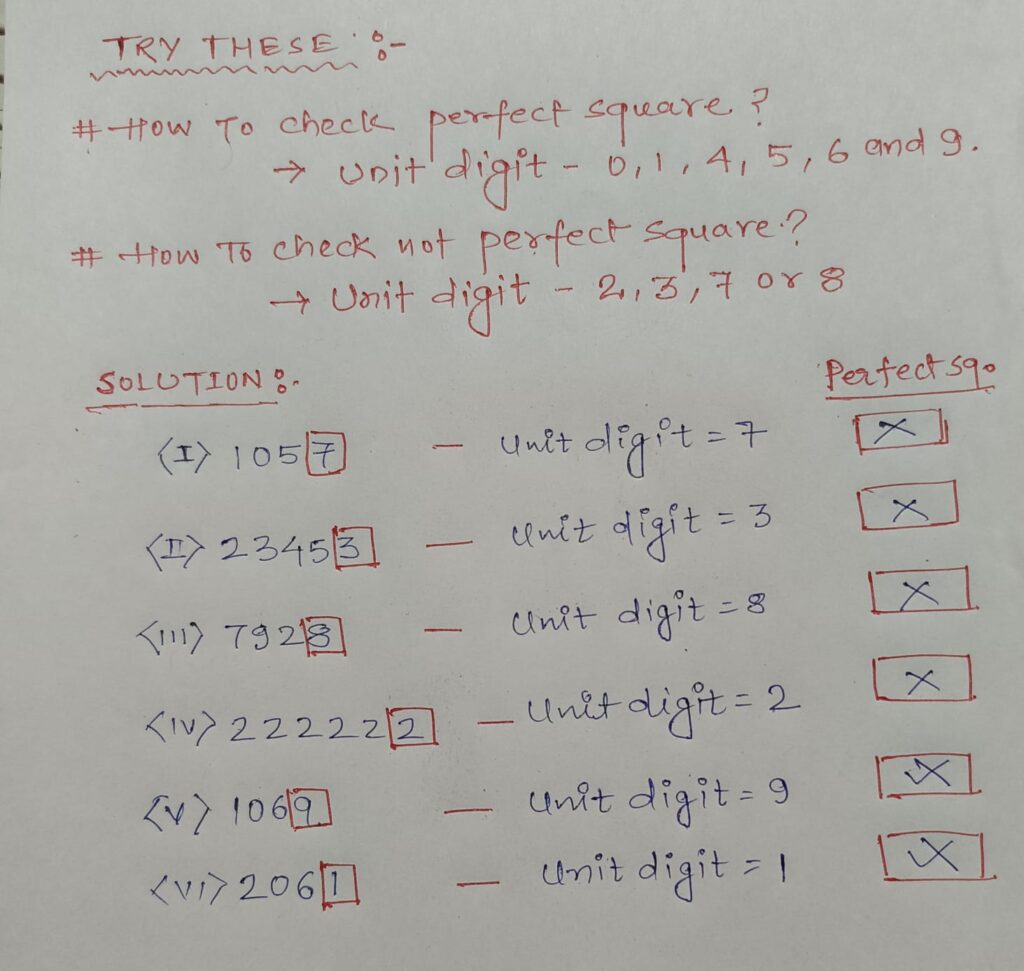 TRY THESE :-
# How To check perfect square ?
→ Unit digit - 0, 1, 4, 5, 6 and 9.
# How To check not perfect square ?
→ Unit digit - 2, 3, 7 or 8
SOLUTION :- Perfect sq.
<I> 1057 — Unit digit = 7 ×
<II> 23453 — Unit digit = 3 ×
<III> 7928 — Unit digit = 8 ×
<IV> 222222 — Unit digit = 2 ×
<V> 1069 — Unit digit = 9 ×
<VI> 2061 — Unit digit = 1 ×